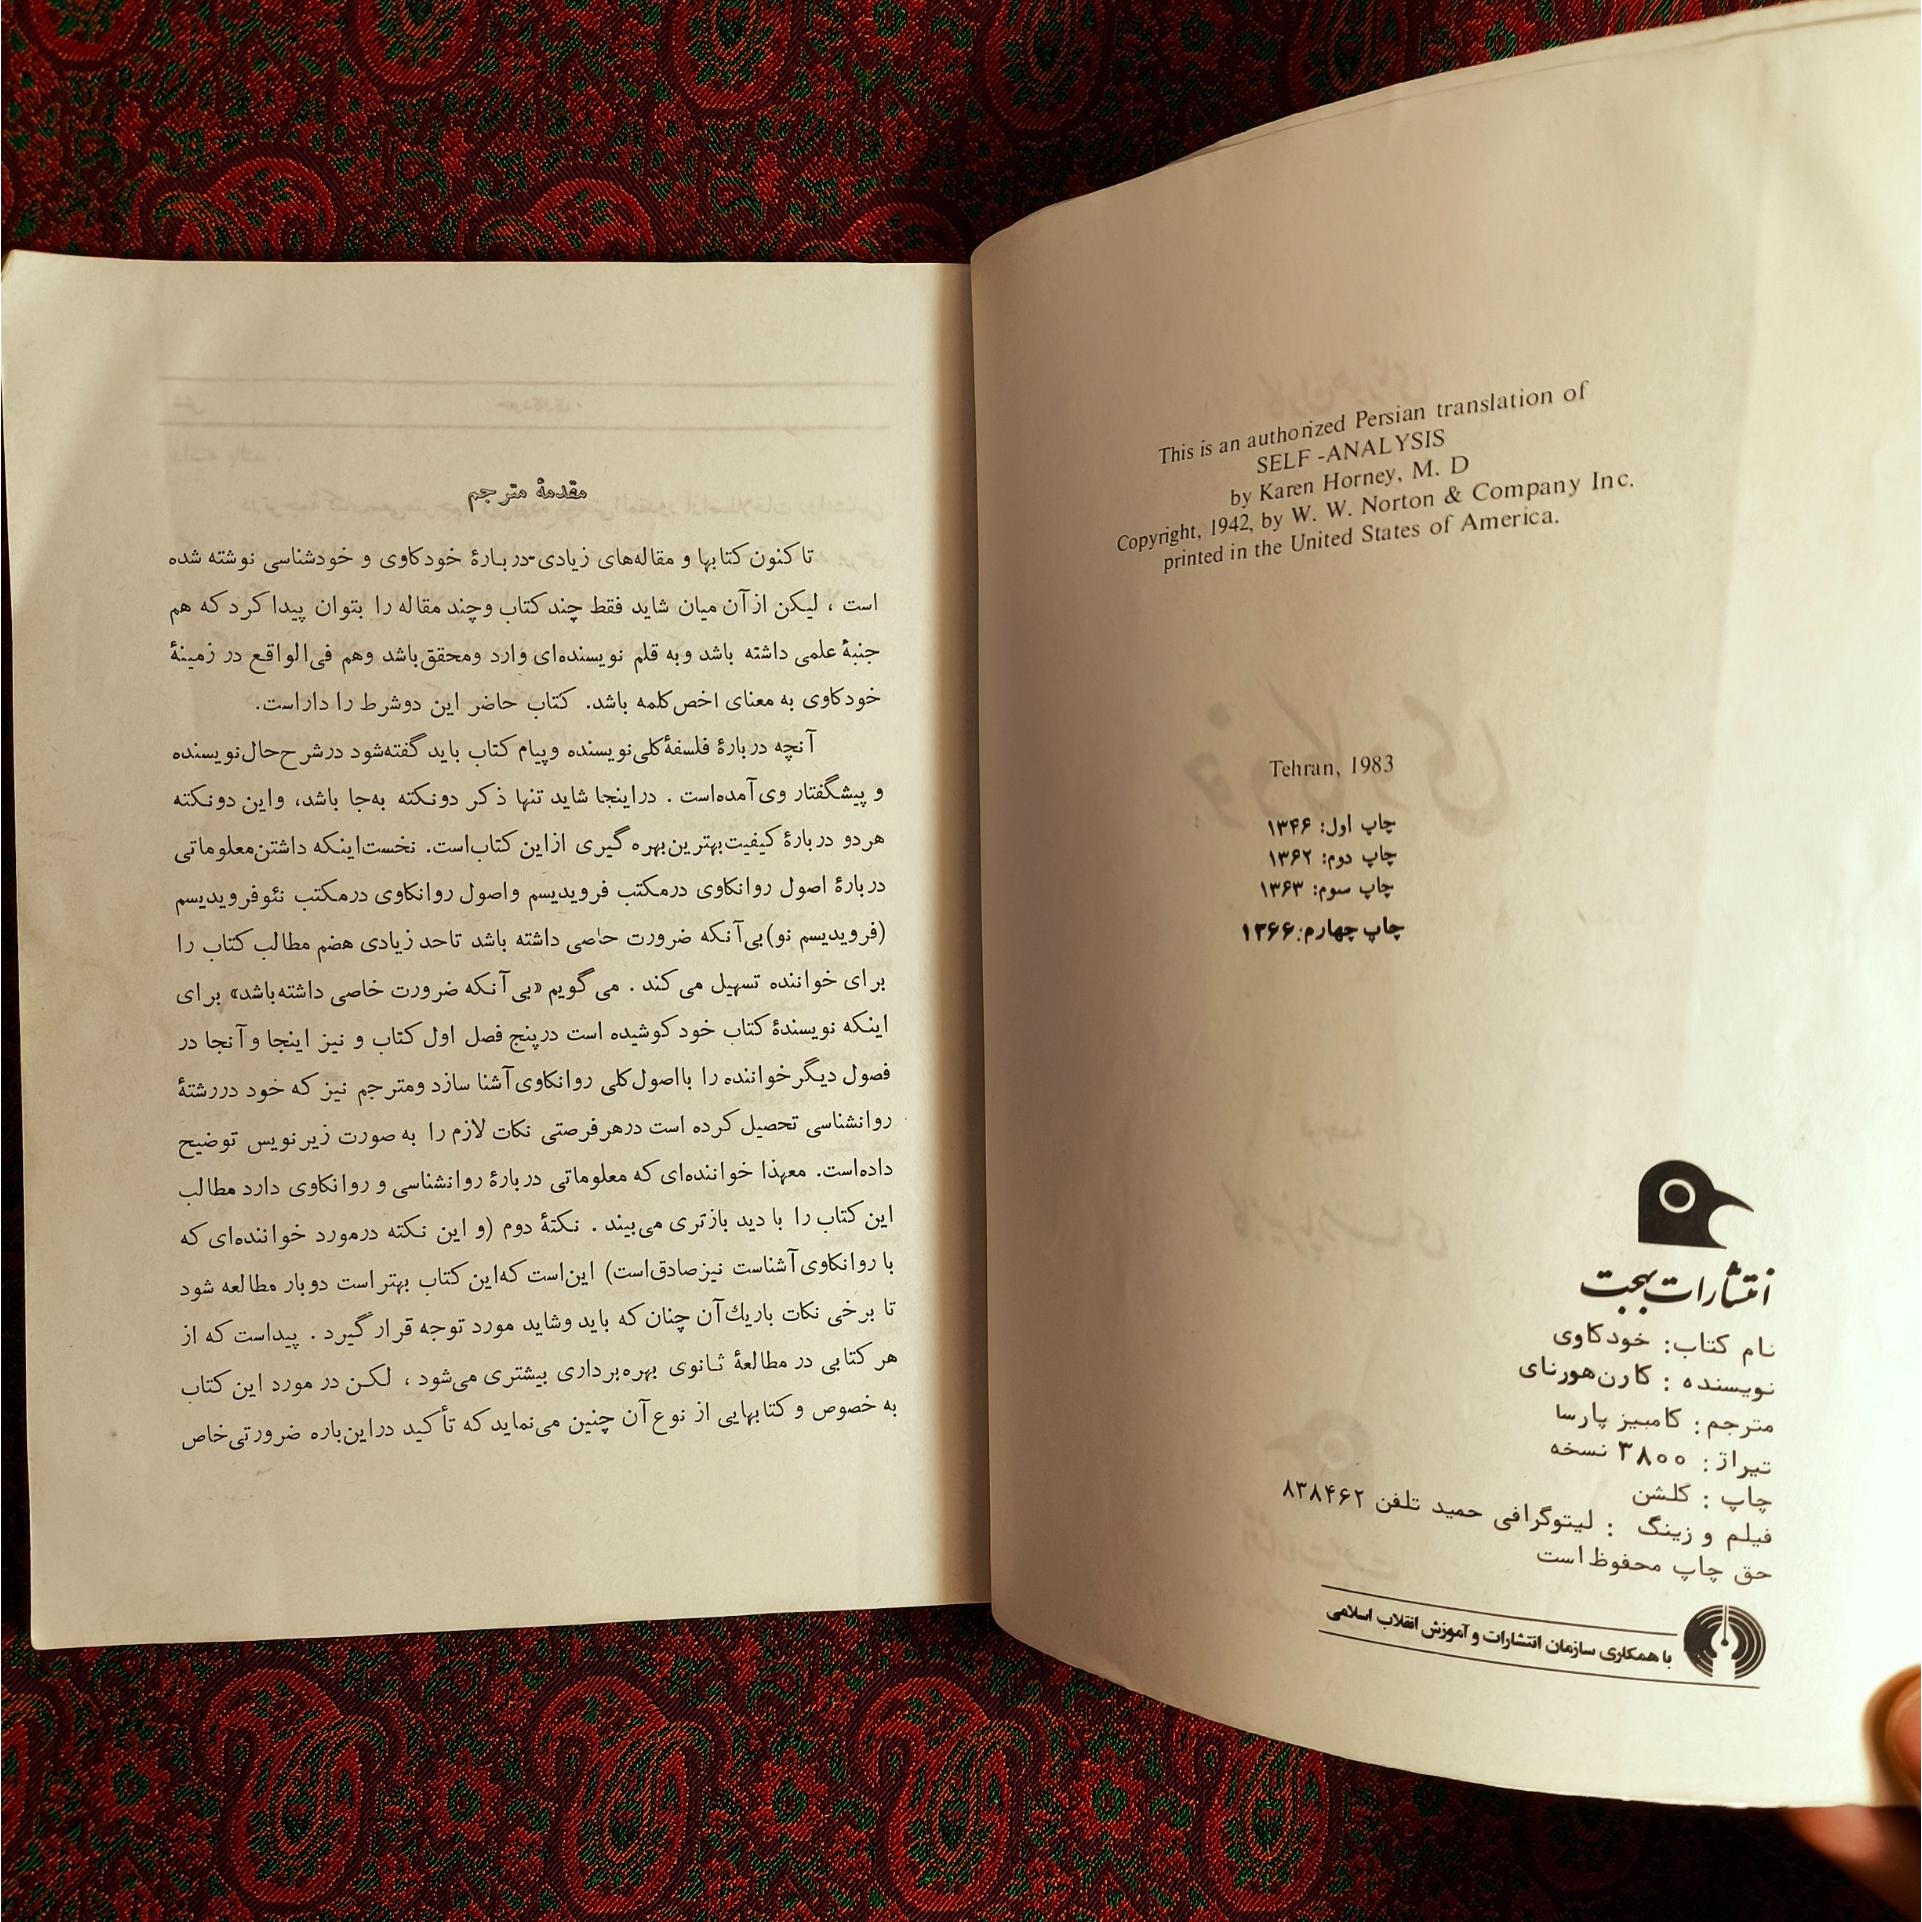 This is an authorized Persian translation of
SELF -ANALYSIS
by Karen Horney, M. D
Copyright, 1942, by W. W. Norton & Company Inc.
printed in the United States of America.
Tehran, 1983
چاپ اول: ۱۳۴۶
چاپ دوم: ۱۳۶۲
چاپ سوم: ۱۳۶۳
چاپ چهارم: ۱۳۶۶
انتشارات بهجت
نام کتاب: خودکاوی
نویسنده : کارن هورنای
مترجم: کامبیز پارسا
تیراژ: ۳۸۰۰ نسخه
چاپ : گلشن
فیلم و زینگ : لیتوگرافی حمید تلفن ۸۳۸۴۶۲
حق چاپ محفوظ است
با همکاری سازمان انتشارات و آموزش انقلاب اسلامی
مقدمهٔ مترجم
تا کنون کتابها و مقاله‌های زیادی دربارهٔ خودکاوی و خودشناسی نوشته شده
است ، لیکن از آن میان شاید فقط چند کتاب و چند مقاله را بتوان پیدا کرد که هم
جنبهٔ علمی داشته باشد و به قلم نویسنده‌ای وارد و محقق باشد وهم فی‌الواقع در زمینهٔ
خودکاوی به معنای اخص کلمه باشد. کتاب حاضر این دو شرط را داراست.
آنچه دربارهٔ فلسفهٔ کلی نویسنده و پیام کتاب باید گفته شود در شرح حال نویسنده
و پیشگفتار وی آمده‌است . در اینجا شاید تنها ذکر دو نکته به‌جا باشد، و این دو نکته
هر دو دربارهٔ کیفیت بهترین بهره گیری از این کتاب است. نخست اینکه داشتن معلوماتی
دربارهٔ اصول روانکاوی در مکتب فرویدیسم و اصول روانکاوی در مکتب نئوفرویدیسم
(فرویدیسم نو) بی آنکه ضرورت خاصی داشته باشد تا حد زیادی هضم مطالب کتاب را
برای خواننده تسهیل می کند . می گویم «بی آنکه ضرورت خاصی داشته باشد» برای
اینکه نویسندهٔ کتاب خود کوشیده است در پنج فصل اول کتاب و نیز اینجا و آنجا در
فصول دیگر خواننده را با اصول کلی روانکاوی آشنا سازد و مترجم نیز که خود در رشتهٔ
روانشناسی تحصیل کرده است در هر فرصتی نکات لازم را به صورت زیرنویس توضیح
داده‌است. معهذا خواننده‌ای که معلوماتی دربارهٔ روانشناسی و روانکاوی دارد مطالب
این کتاب را با دید بازتری می‌بیند . نکتهٔ دوم (و این نکته در مورد خواننده‌ای که
با روانکاوی آشناست نیز صادق است) این است که این کتاب بهتر است دوبار مطالعه شود
تا برخی نکات باریك آن چنان که باید و شاید مورد توجه قرار گیرد . پیداست که از
هر کتابی در مطالعهٔ ثانوی بهره‌برداری بیشتری می‌شود ، لکن در مورد این کتاب
به خصوص و کتابهایی از نوع آن چنین می‌نماید که تأکید در این باره ضرورتی خاص